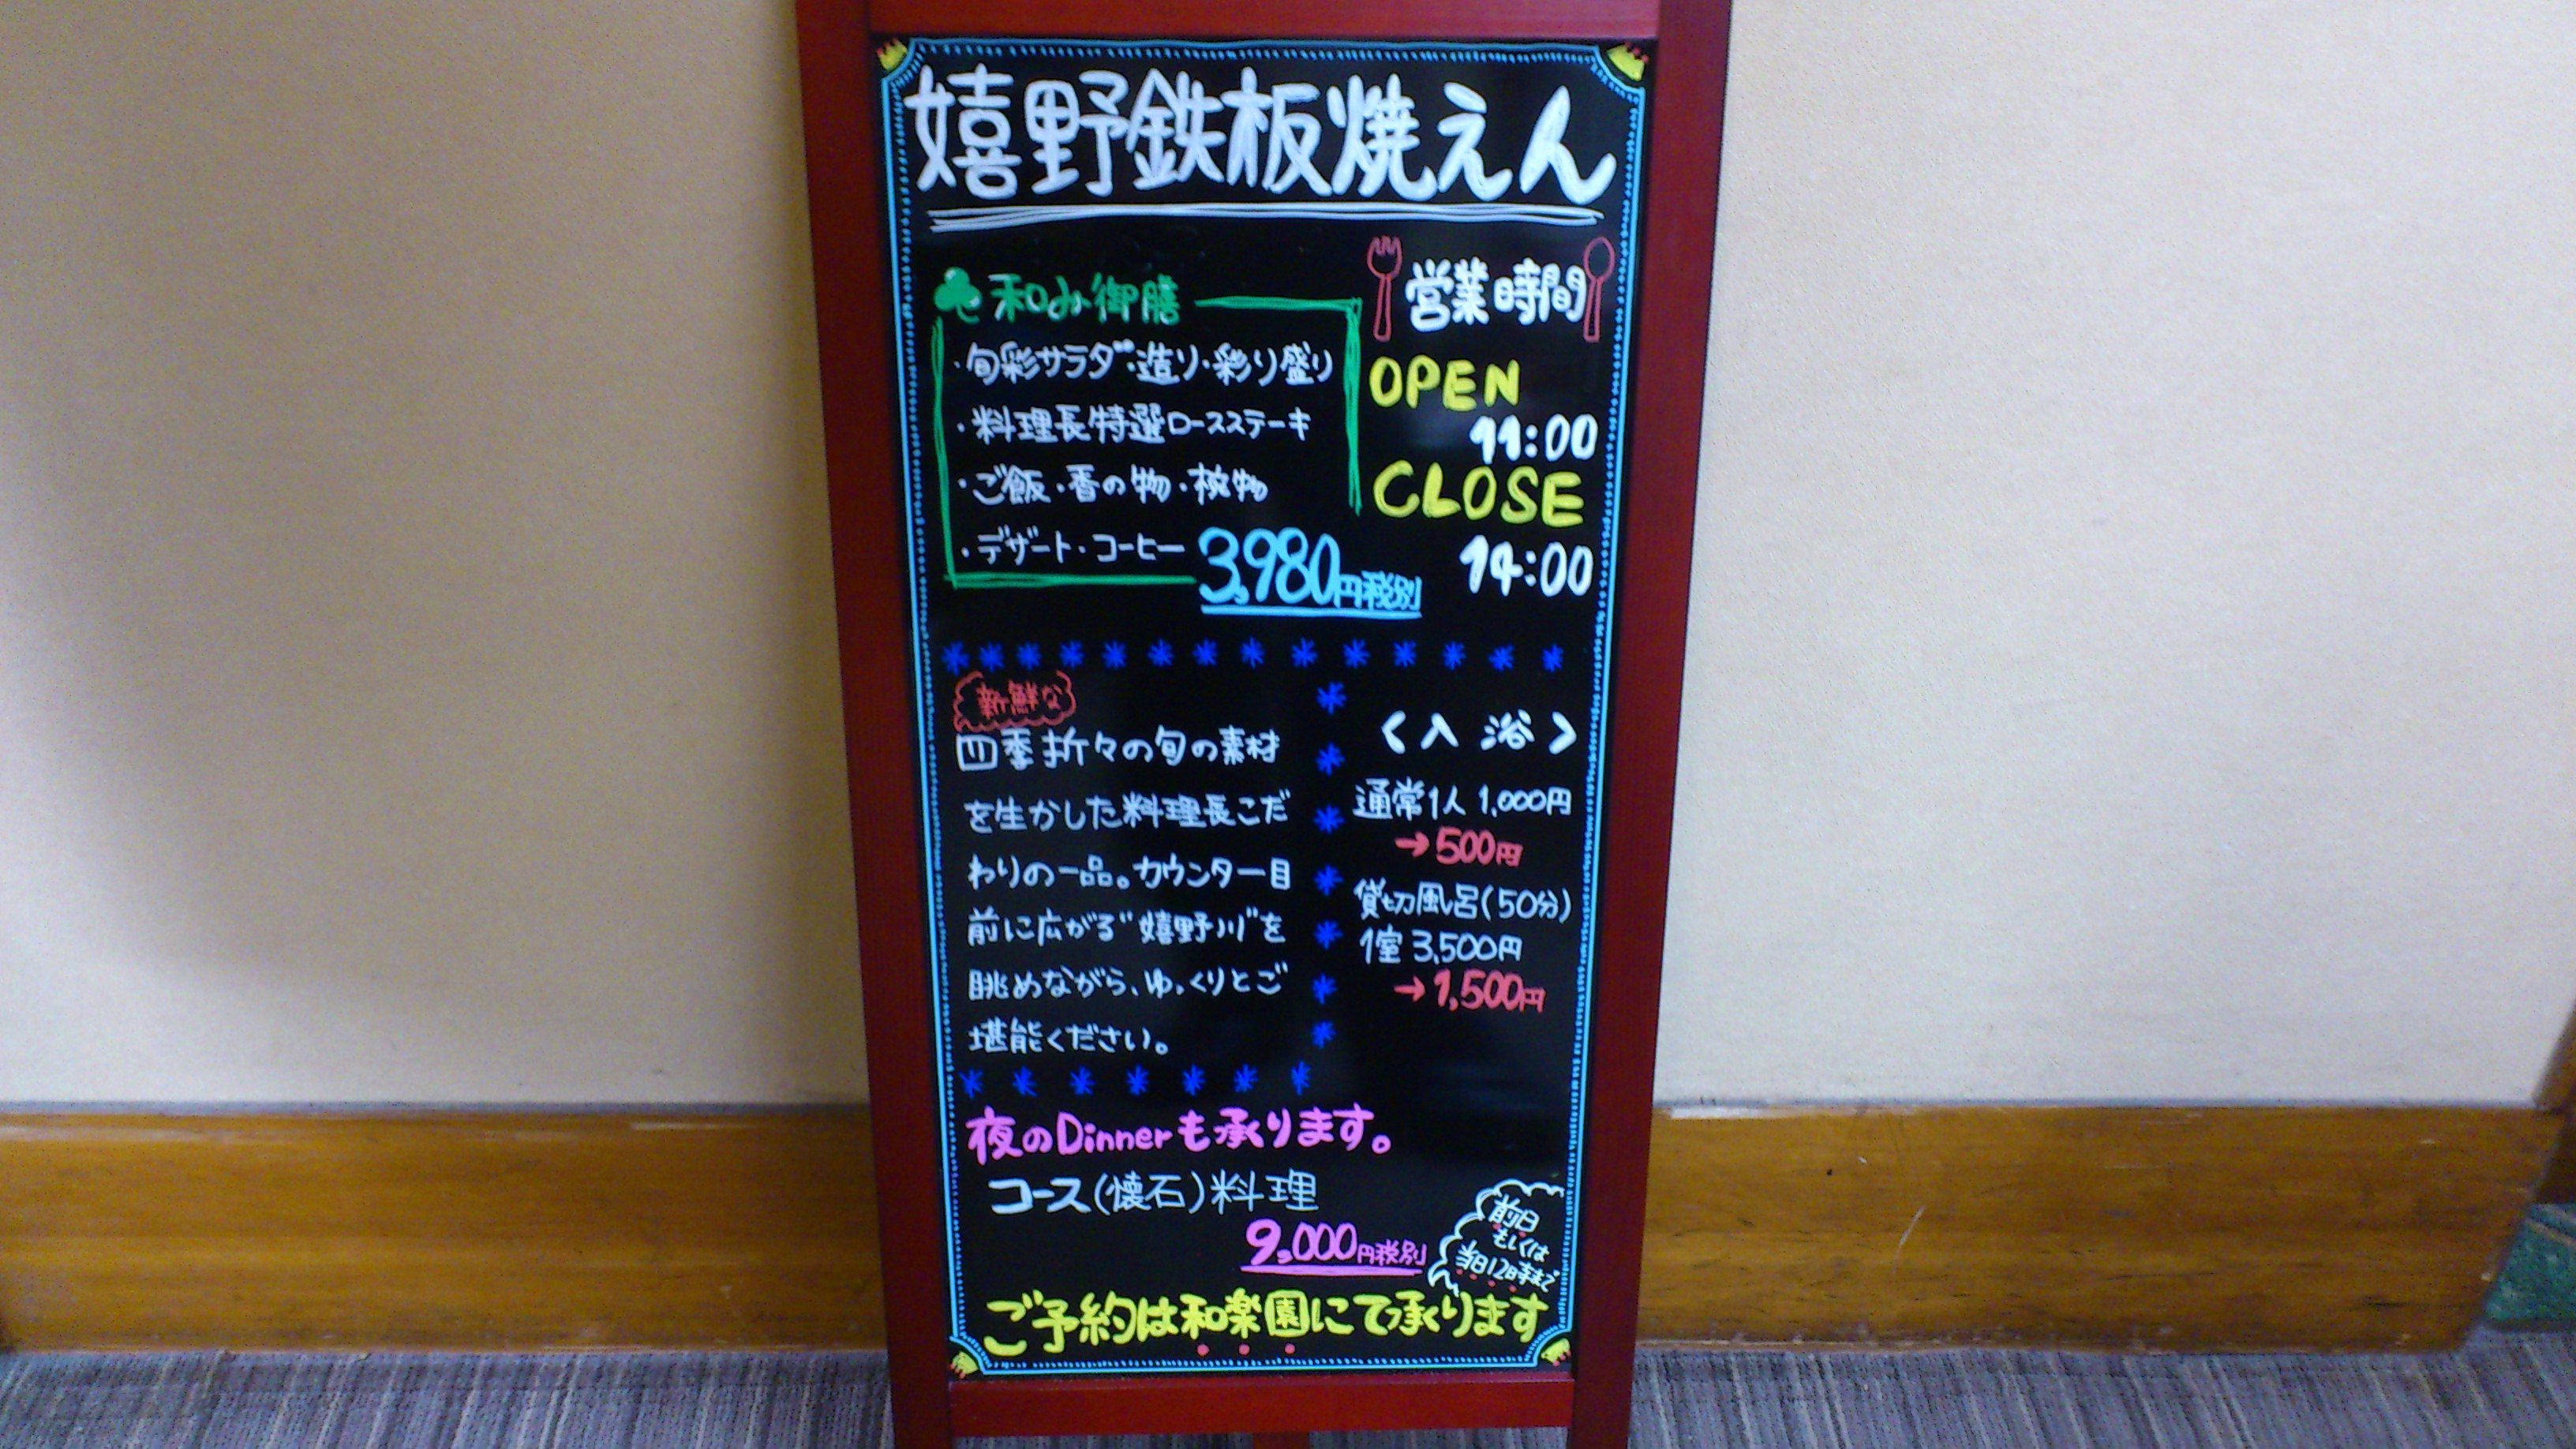 嬉野鉄板焼えん
和み御膳
・旬彩サラダ・造り・彩り盛り
・料理長特選ロースステーキ
・ご飯・香の物・椀物
・デザート・コーヒー
3,980円税別
営業時間
OPEN
11:00
CLOSE
14:00
新鮮な
四季折々の旬の素材
を生かした料理長こだ
わりの一品。カウンター目
前に広がる"嬉野川"を
眺めながら、ゆっくりとご
堪能ください。
<入浴>
通常1人 1,000円
→500円
貸切風呂(50分)
1室 3,500円
→1,500円
夜のDinnerも承ります。
コース(懐石)料理
9,000円税別
前日
もしくは
当日12時まで
ご予約は和楽園にて承ります